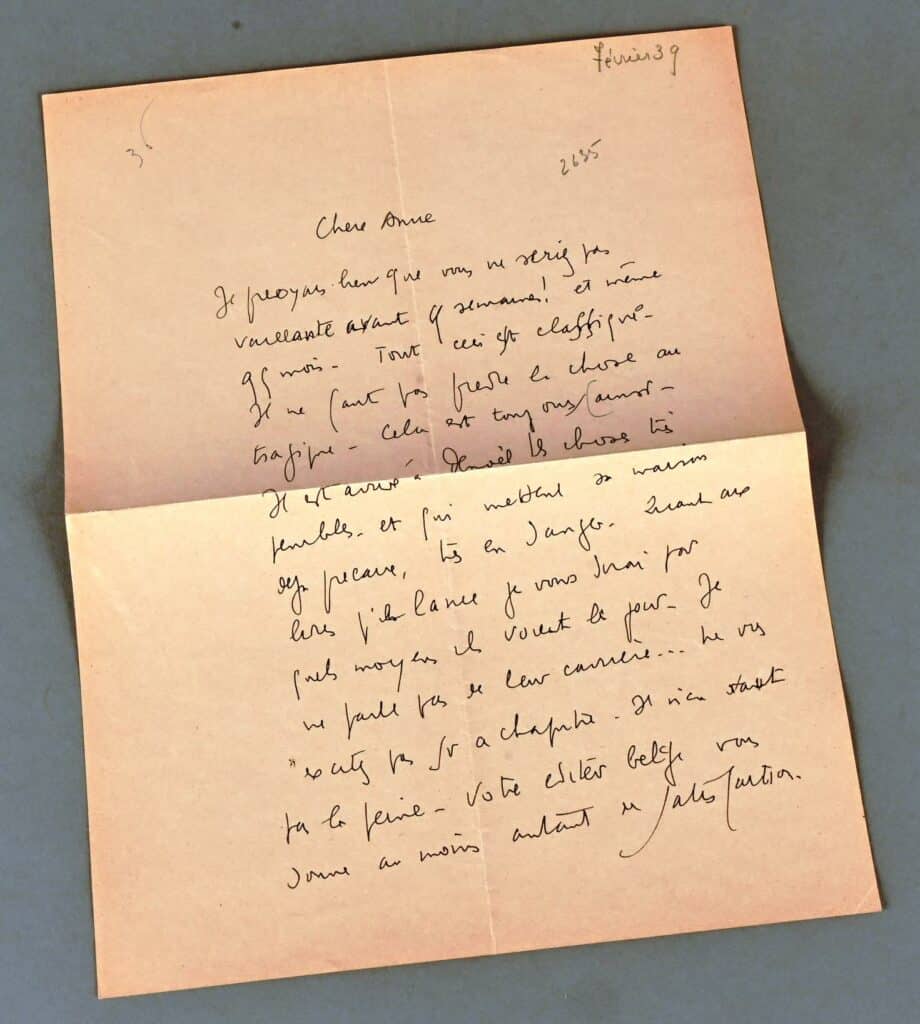 Février 39
36
2635
Chere Anne
Je prevoyais bien que vous ne seriez pas
vaillante avant 9 semaines! et même
mois - Tout ceci est classique -
Il ne faut pas prendre la chose au
tragique - cela est toujours ainsi -
Il est arrivé à Denoël des choses très
penibles - et qui mettent sa maison
deja precaire, très en danger. Quant aux
livres qu'il lance je vous dirai par
quels moyens ils voient le jour - Je
ne parle pas de leur carrière... Ne vous
excitez pas sur ce chapitre - Il n'en vaut
pas la peine - Votre editeur belge vous
donne au moins autant de satisfaction.